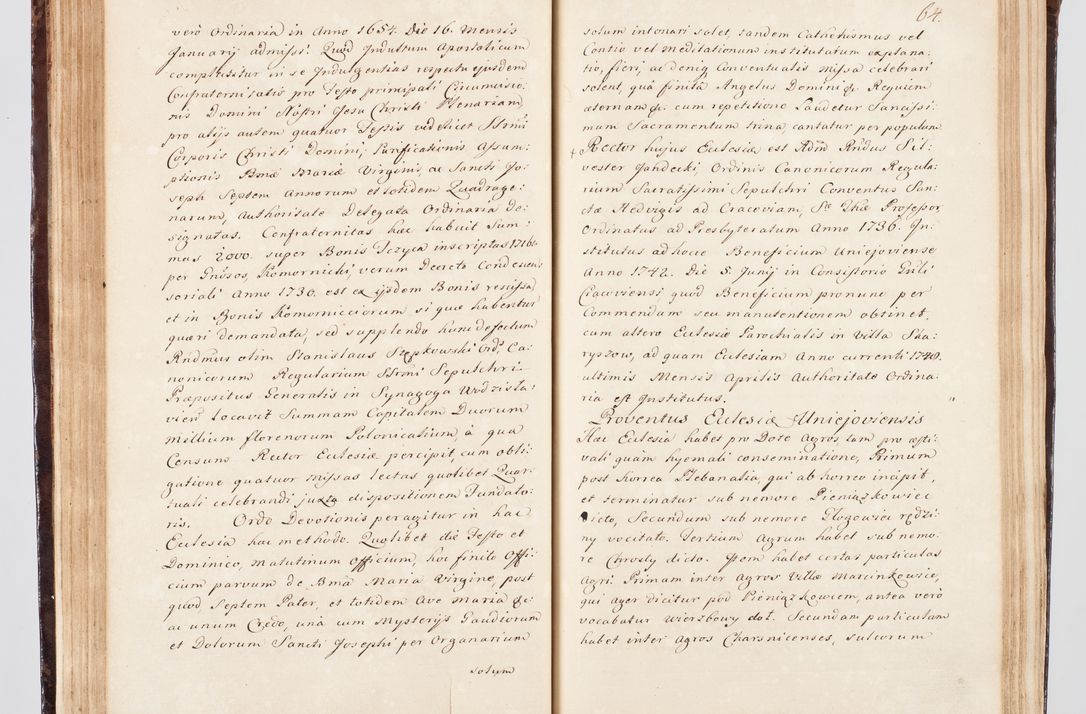 verò Ordinaria in Anno 1654. Die 16. Mensis
Januarij admissi. Quod Indultum Apostolicum
complectitur in se Indulgentias respectu ejusdem
Confraternitatis pro Festo principali Circumcisio:
nis Domini Nostri Jesu Christi Plenariam
pro alijs autem quatuor Festis videlicet SSrmi
Corporis Christi Domini, Purificationis Assum:
ptionis Bmæ Mariæ Virginis, ac Sancti Jo:
seph Septem Annorum et totidem Quadrage:
narum, Authoritate Delegata Ordinaria de:
signatas. Confraternitas hæc habuit Sum:
mas 2000. super Bonis Tczyca inscriptas 1716.
per Gnosos, Komornicki, verum Decreto Condescen:
soriali Anno 1730. est ex ijsdem Bonis rescissa,
et in Bonis Komornicciorum si quæ habentur
quæri demandata, sed supplendo huic defectum
Rndmus olim Stanislaus Stępkowski Ord: Ca:
nonicorum Regularium SSrmi Sepulchri
Præpositus Generalis in Synagoga Wodzisla:
vien: locavit Summam Capitalem Duorum
Millium florenorum Polonicalium, à qua
Censum Rector Ecclesiæ percipit, cum obli:
gatione quatuor Missas lectas quolibet Quar:
tuali celebrandi juxta dispositionem Fundato:
ris. Ordo Devotionis peragitur in hac
Ecclesia hac methodo. Quolibet die Festo et
Dominico, Matutinum Officium, hoc finito Offi:
cium parvum de Bmã Maria Virgine, post
quod Septem Pater, et totidem Ave Maria &c:
ac unum Credo, unà cum Mysterijs Gaudiorum
et Dolorum Sancti Josephi per Organarium
solum
64.
solum intonari solet, tandem Catechismus vel
Contio vel meditationum institutarum explana:
tio, fieri, ac deniq Conventualis Missa celebrari
solent, quâ finitâ Angelus Domini &c. Requiem
æternam &c. cum repetitione Laudetur Sanctissi:
mum Sacramentum trina, cantatur per populum.
+ Rector hujus Ecclesiæ est Adm Rndus Sil:
vester Jandecki, Ordinis Canonicorum Regula:
rium Sacratissimi Sepulchri Conventus San:
ctæ Hedvigis ad Cracoviam, Sæ Thæ Professor,
Ordinatus ad Presbyteratum Anno 1736. In:
stitutus ad hocce Beneficium Uniejoviense
Anno 1742. Die 5. Junij in Consistorio Gnli
Cracoviensi quod Beneficium pronunc per
Commendam seu manutentionem obtinet,
cum altero Ecclesiæ Parochialis in Villa Ska:
ryszow, ad quam Ecclesiam Anno currenti 1748.
ultimis Mensis Aprilis Authoritate Ordina:
ria est Institutus.
Proventus Ecclesiæ Uniejoviensis
Hæc Ecclesia habet pro Dote Agros tam pro æsti:
vali quam hyemali conseminatione, Primum
post horrea Plebanalia, qui ab horreo incipit,
et terminatur sub nemore Pieniązkowiec
dicto, Secundum sub nemore Głogowiec rędzi:
ny vocitato. Tertium Agrum habet sub nemo:
re Chrosty dicto. Item habet certas particulas
Agri. Primam inter Agros Villæ Marcinkowice,
qui ager dicitur pod Pieniązkowcem, antea verò
vocabatur Wierzbowy doł. Secundam particulam
habet inter Agros Charsnicenses, sulcorum